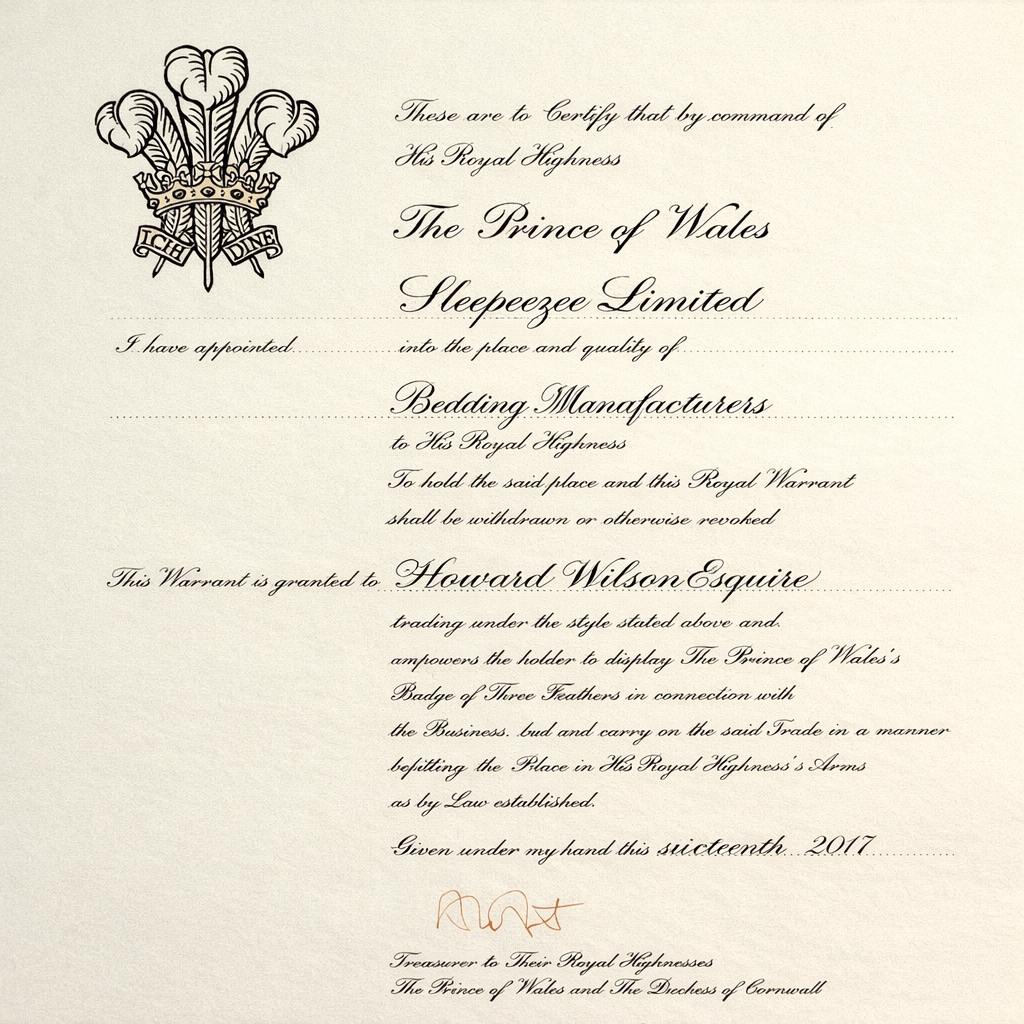 ICH DINE
These are to Certify that by command of
His Royal Highness
The Prince of Wales
Sleepeezee Limited
I have appointed into the place and quality of
Bedding Manafacturers
to His Royal Highness
To hold the said place and this Royal Warrant
shall be withdrawn or otherwise revoked
This Warrant is granted to Howard Wilson Esquire
trading under the style stated above and
ampowers the holder to display The Prince of Wales's
Badge of Three Feathers in connection with
the Business. bud and carry on the said Trade in a manner
befitting the Place in His Royal Highness's Arms
as by Law established.
Given under my hand this siicteenth 2017
Treasurer to Their Royal Highnesses
The Prince of Wales and The Duchess of Cornwall